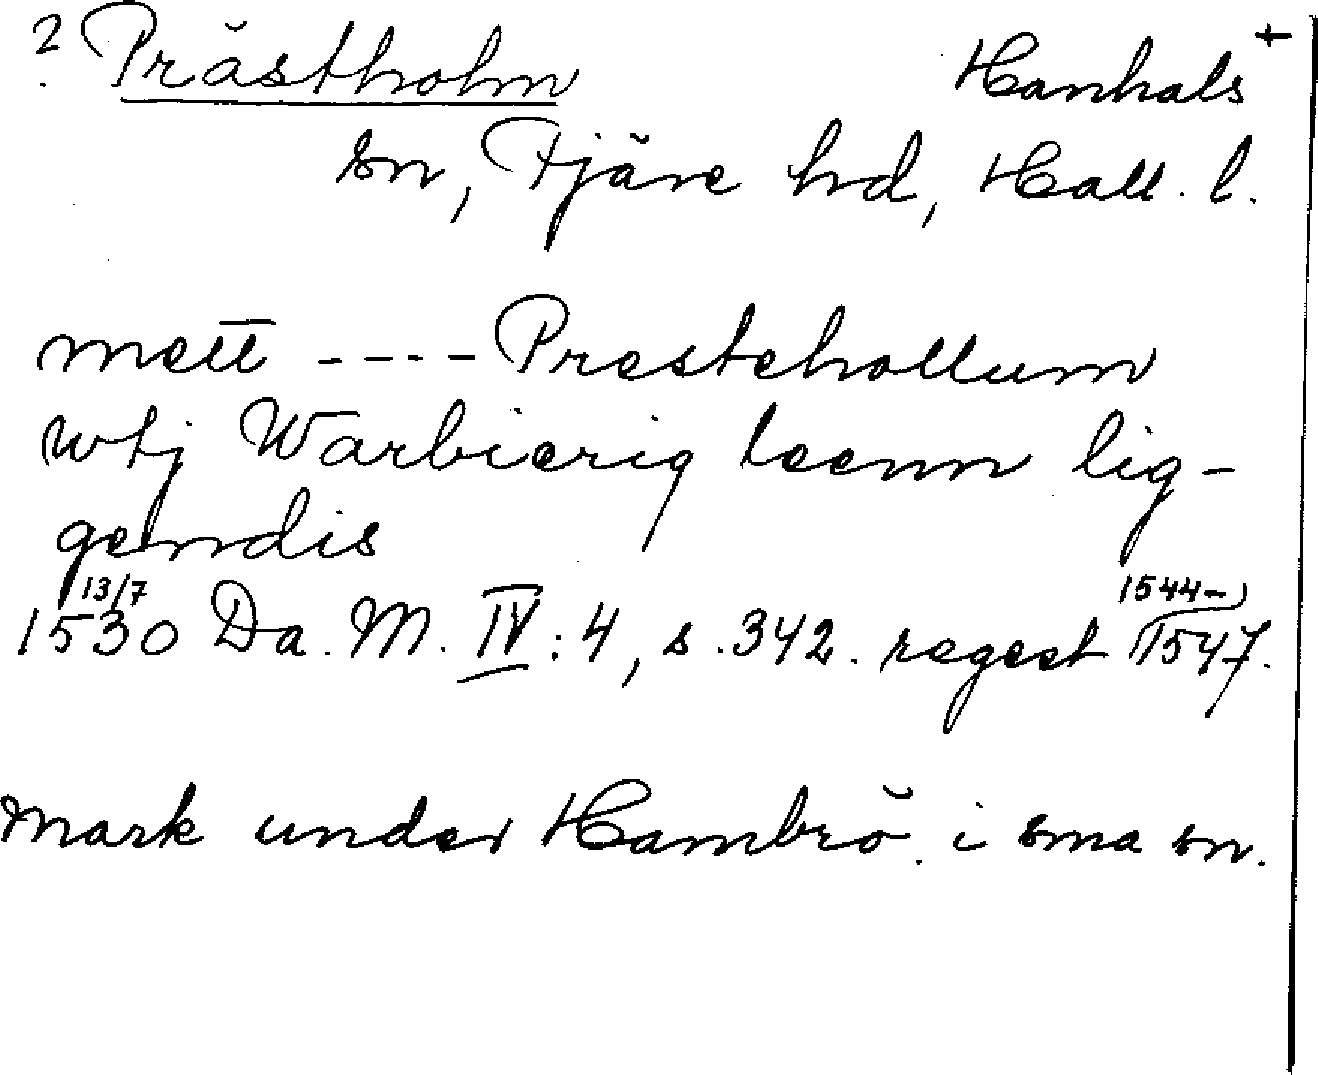 ? Prästholm Hanhals +
sn, Fjäre hd, Hall. l.
mett ---- Prestehollum
wtj Warbierig leenn lig-
gendis
13/7 1544-
1530 Da. M. IV:4, s. 342. regest 1547.
Mark under Hambrö i sma sn.